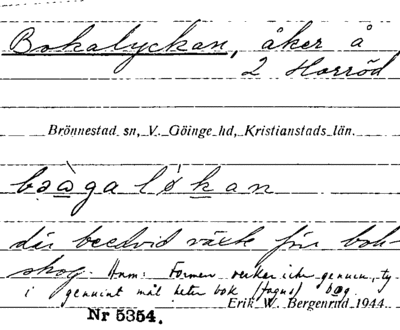 Bokalyckan, åker å
2 Horröd
Brönnestad sn, V. Göinge hd, Kristianstads län.
bɔå̠galø̀kan
där bredvid växte förr bok-
skog. Anm: Formen verkar icke genuin, ty
i genuint mål heter bok (fagus) bøg
Erik W. Bergenrud 1944.
Nr 5354.